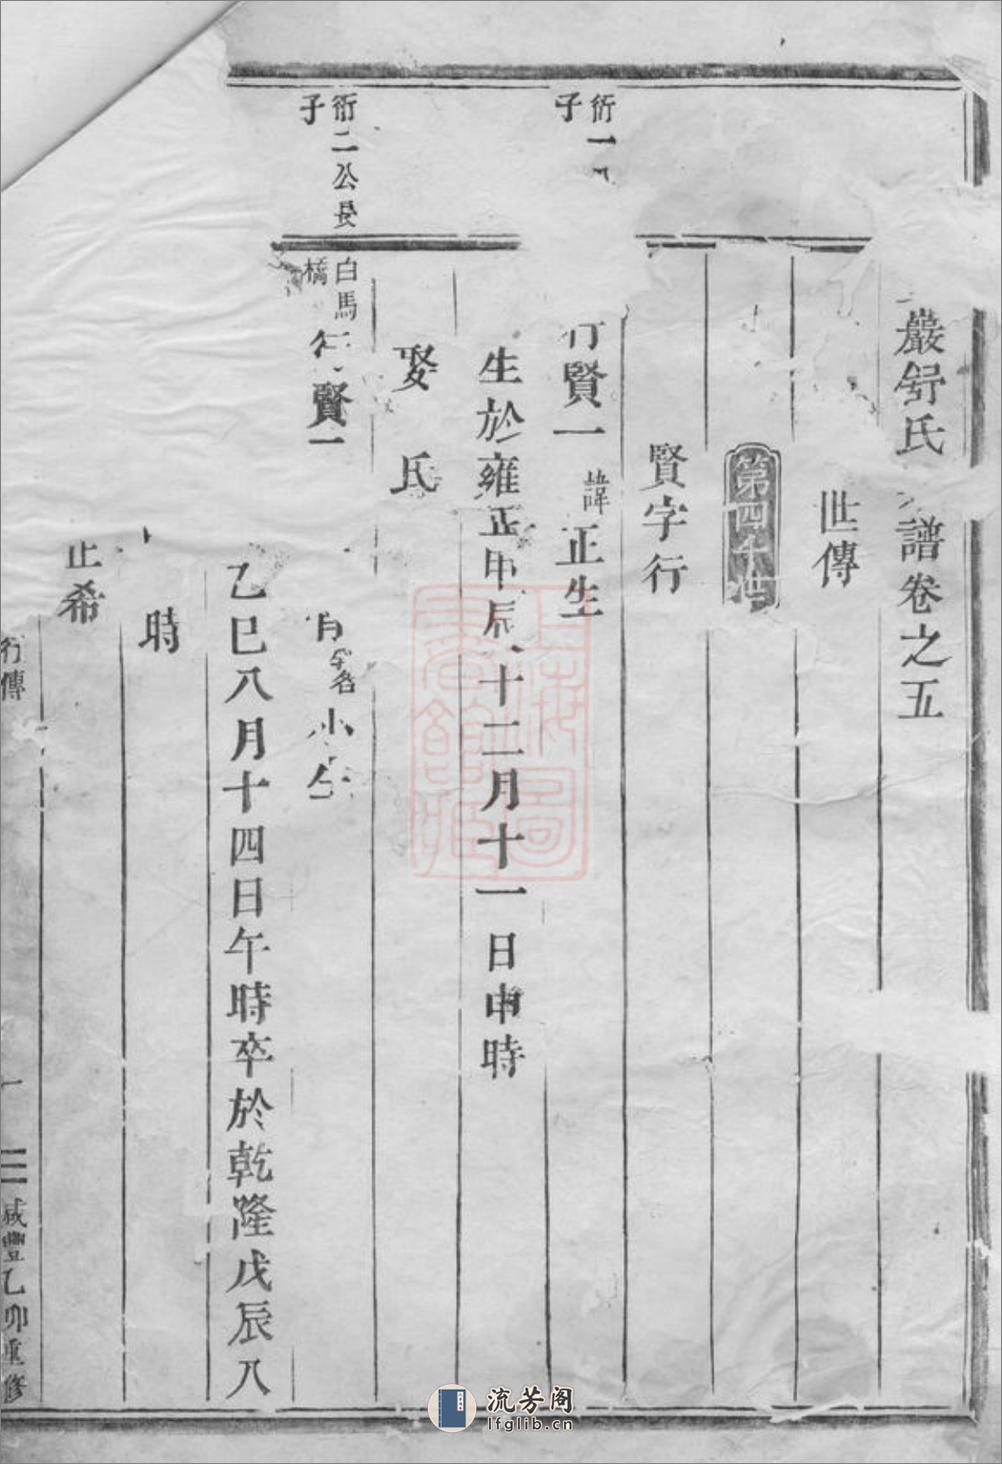 巖舒氏 譜卷之五
世傳
第四十世
賢字行
衍一
子
行賢一 諱正生
生於雍正甲辰 十二月十一日申時
娶 氏
衍二公長
子
白馬
橋
賢一
小
乙巳八月十四日午時卒於乾隆戊辰八
時
希
行傳 一 咸豐乙卯重修
流芳阁
lfglib.cn